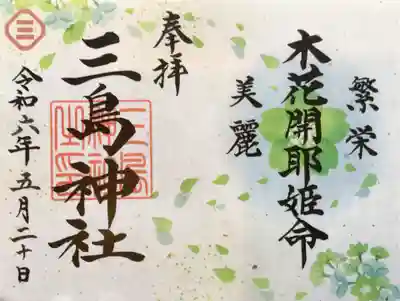 繁栄
木花開耶姫命
美麗
奉拝
三島神社
令和六年五月二十日
三